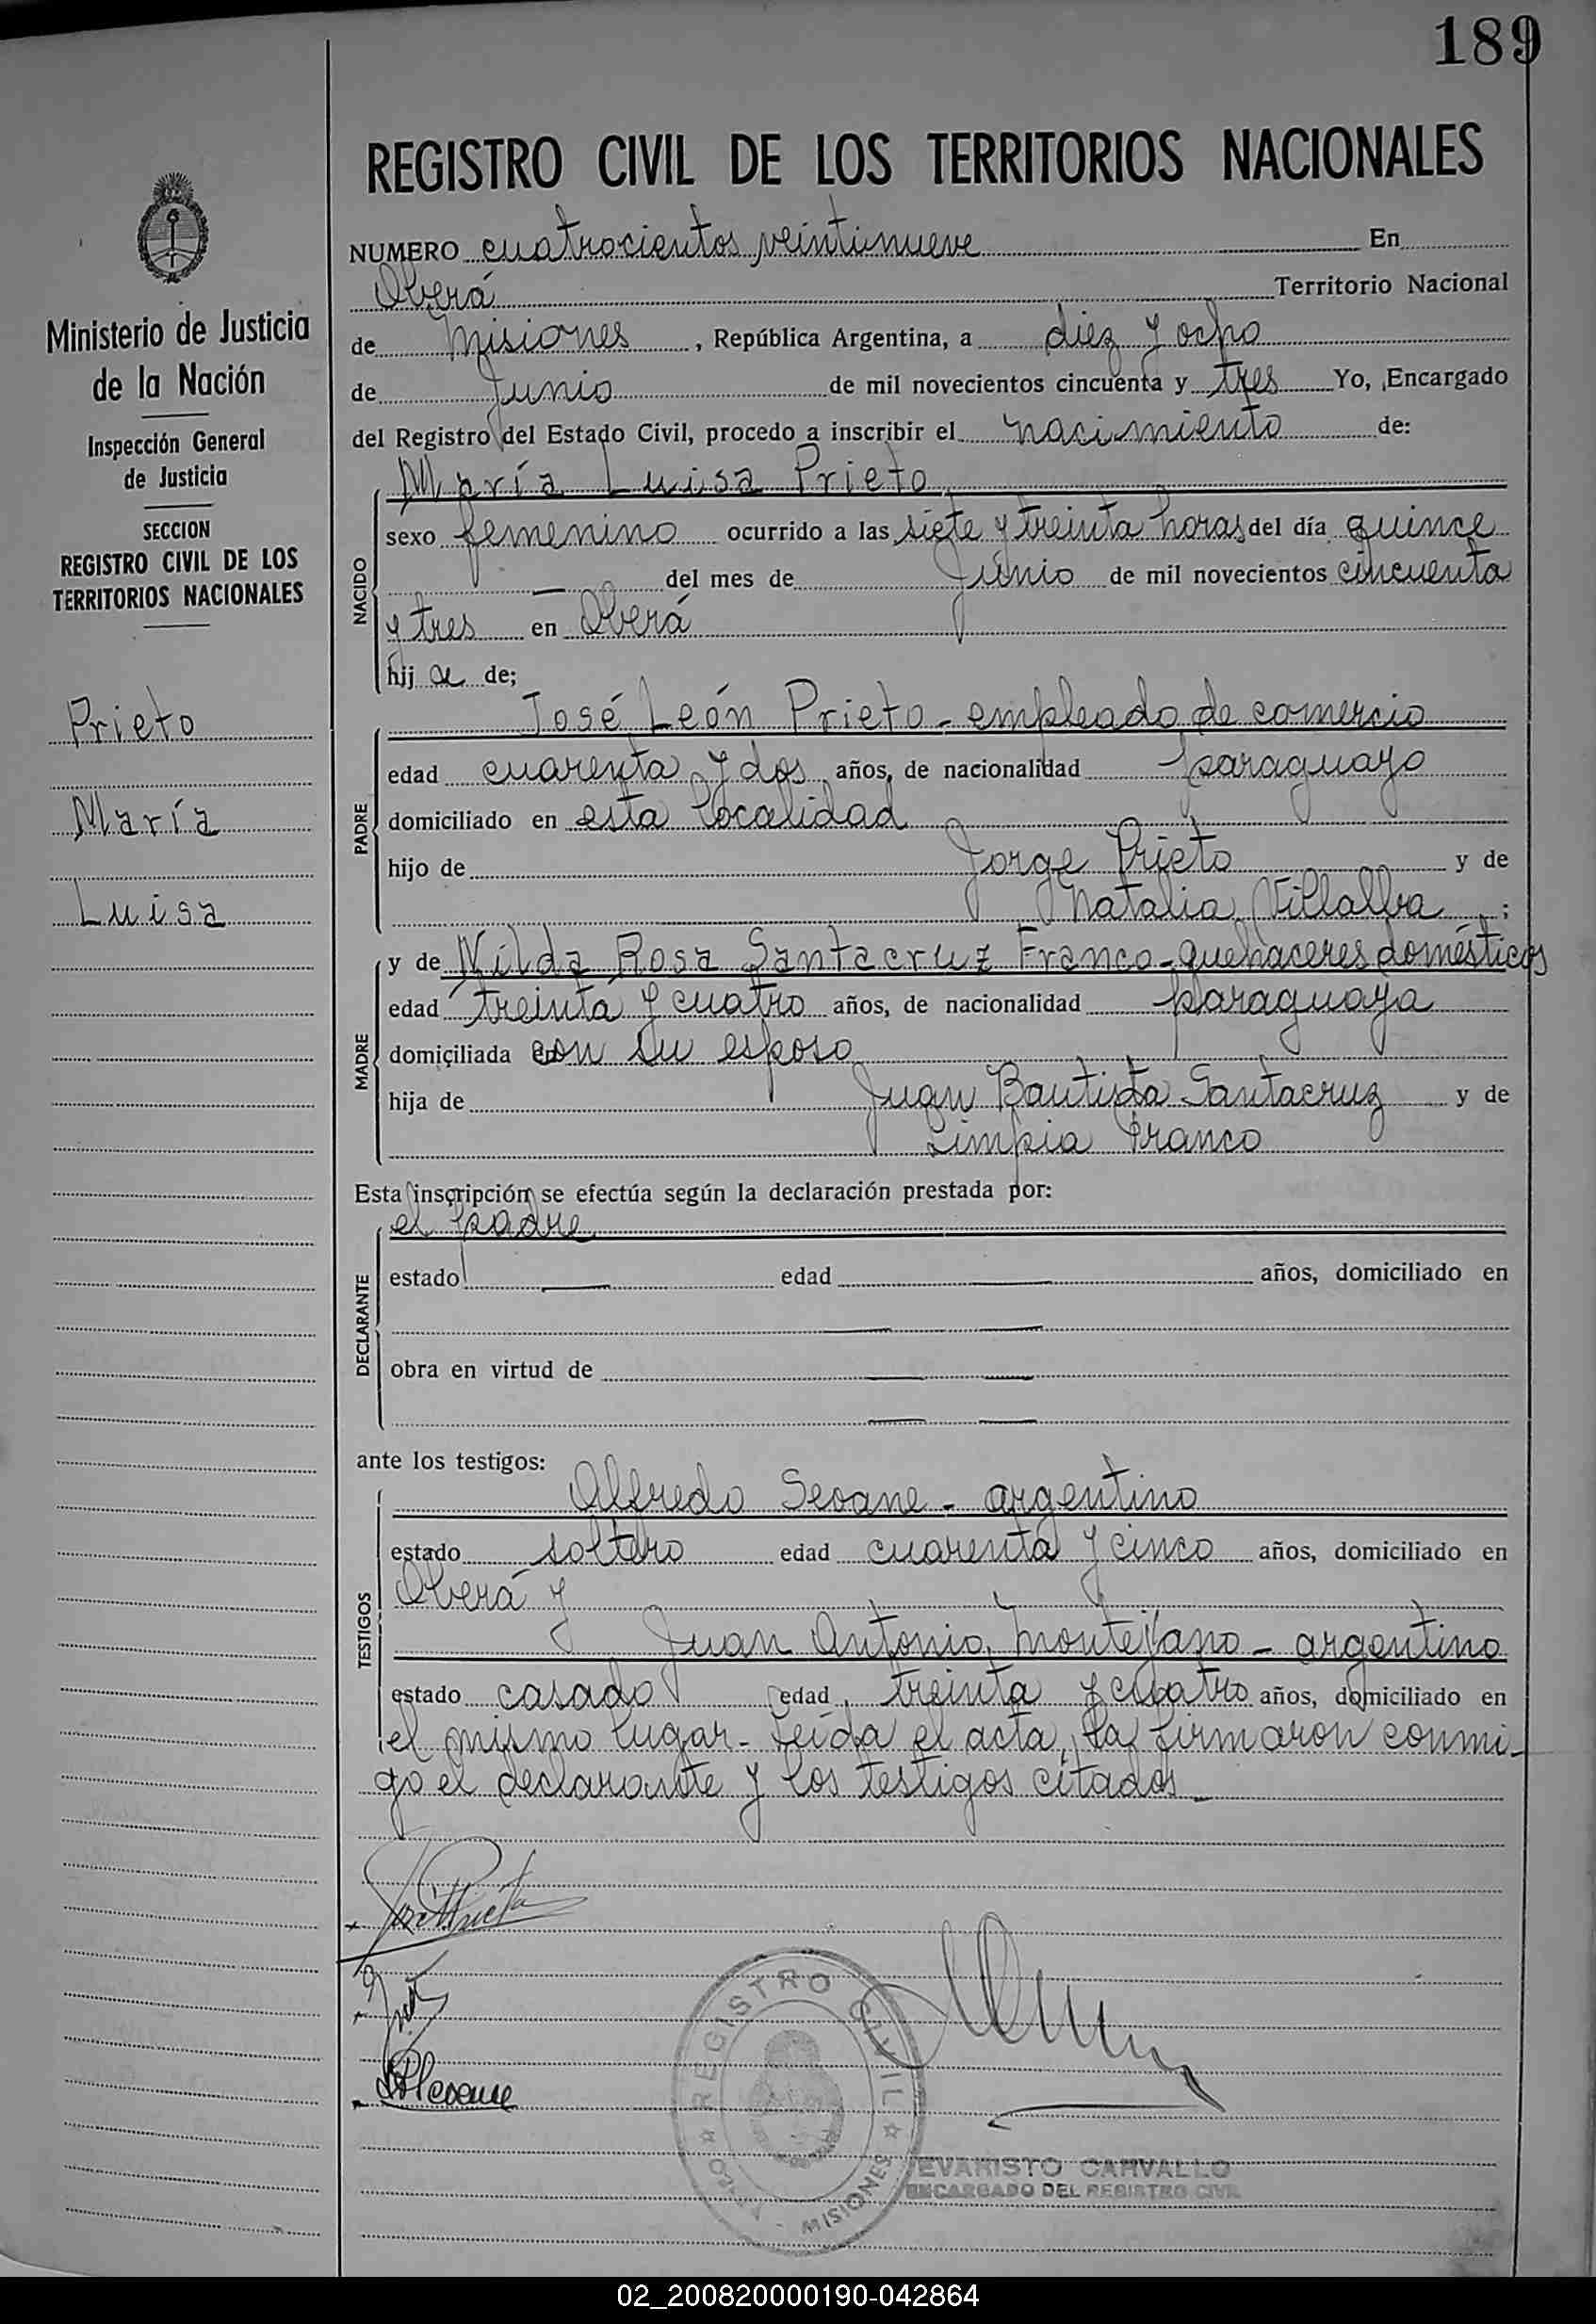 189
REGISTRO CIVIL DE LOS TERRITORIOS NACIONALES
Ministerio de Justicia
de la Nación
Inspección General
de Justicia
SECCION
REGISTRO CIVIL DE LOS
TERRITORIOS NACIONALES
Prieto
María
Luisa
NUMERO cuatrocientos veintinueve En
Oberá Territorio Nacional
de Misiones, República Argentina, a diez y ocho
de Junio de mil novecientos cincuenta y tres Yo, Encargado
del Registro del Estado Civil, procedo a inscribir el nacimiento de:
NACIDO
María Luisa Prieto
sexo femenino ocurrido a las siete y treinta horas del día quince
— del mes de Junio de mil novecientos cincuenta
y tres en Oberá
hija de;
PADRE
José León Prieto - empleado de comercio
edad cuarenta y dos años, de nacionalidad paraguayo
domiciliado en esta localidad
hijo de Jorge Prieto y de
Natalia Villalba ;
MADRE
y de Nilda Rosa Santacruz Franco - quehaceres domésticos
edad treinta y cuatro años, de nacionalidad paraguaya
domiciliada con su esposo
hija de Juan Bautista Santacruz y de
Limpia Franco
Esta inscripción se efectúa según la declaración prestada por:
DECLARANTE
el padre
estado — edad — años, domiciliado en
— —
obra en virtud de — —
— —
ante los testigos:
TESTIGOS
Alfredo Seoane - argentino
estado soltero edad cuarenta y cinco años, domiciliado en
Oberá y
Juan Antonio Montejano - argentino
estado casado edad treinta y cuatro años, domiciliado en
el mismo lugar - Leída el acta, la firmaron conmi-
go el declarante y los testigos citados -
REGISTRO CIVIL
MISIONES
EVARISTO CARVALLO
ENCARGADO DEL REGISTRO CIVIL
02_200820000190-042864